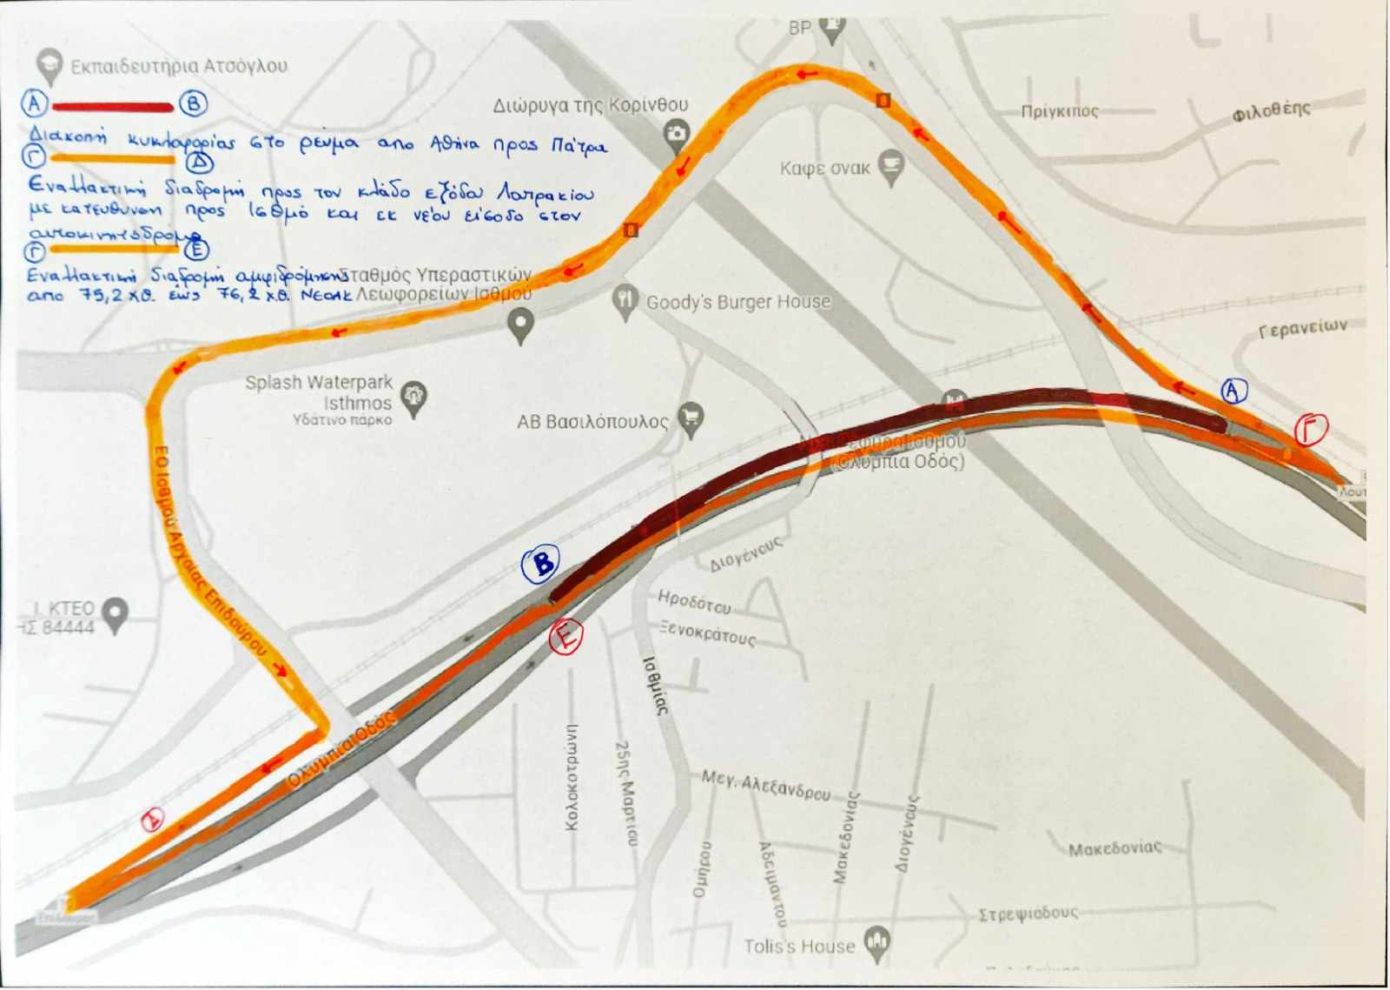 BP
Εκπαιδευτήρια Ατσόγλου
Α Β
Διώρυγα της Κορίνθου
Πρίγκιπος
Φιλοθέης
Διακοπή κυκλοφορίας στο ρεύμα απο Αθήνα προς Πάτρα
Γ Δ
Καφε σνακ
Εναλλακτική διαδρομή προς τον κλάδο εξόδου Λουτρακίου
με κατευθυνση προς Ισθμό και εκ νέου είσοδο στον
αυτοκινητόδρομο
Γ Ε
Εναλλακτική διαδρομή αμφιδρόμηση
απο 75,2 χθ. έως 76,2 χ.θ. ΝΕΟΑΚ
Σταθμός Υπεραστικών
Λεωφορείων Ισθμού
Goody's Burger House
Γερανείων
Splash Waterpark
Isthmos
Υδάτινο πάρκο
ΑΒ Βασιλόπουλος
Α
Γ
(Ολυμπία Οδός)
Λουτ
ΕΟ Ισθμού Αρχαίας Επιδαύρου
Β
Διογένους
Ι. ΚΤΕΟ
ΗΣ 84444
Ηροδότου
Ξενοκράτους
Ε
Ισθμίας
Ολυμπία Οδός
Κολοκοτρώνη
25ης Μαρτίου
Μεγ. Αλεξάνδρου
Μακεδονίας
Διογένους
Μακεδονίας
Δ
Ομήρου
Αδειμάντου
Επίδαυρος
Στρεψιάδους
Tolis's House